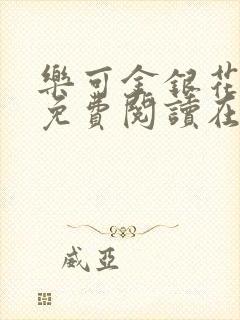 樂可金銀花
免費閱讀在
威亞